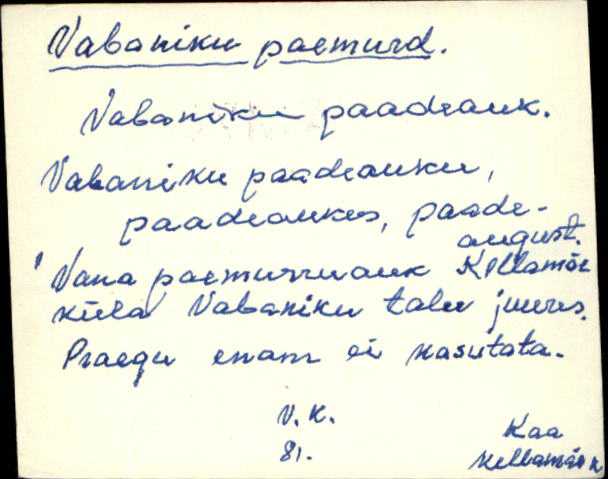 Vabaniku paemurd.
Vabaniku paadeauk.
Vabaniku paadeauku,
paadeaukos, paade-
august.
Vana paemurruauk Kellamäe
küla Vabaniku talu juures.
Praegu enam ei kasutata.
V. K.
81.
Kaa
Kellamäe k